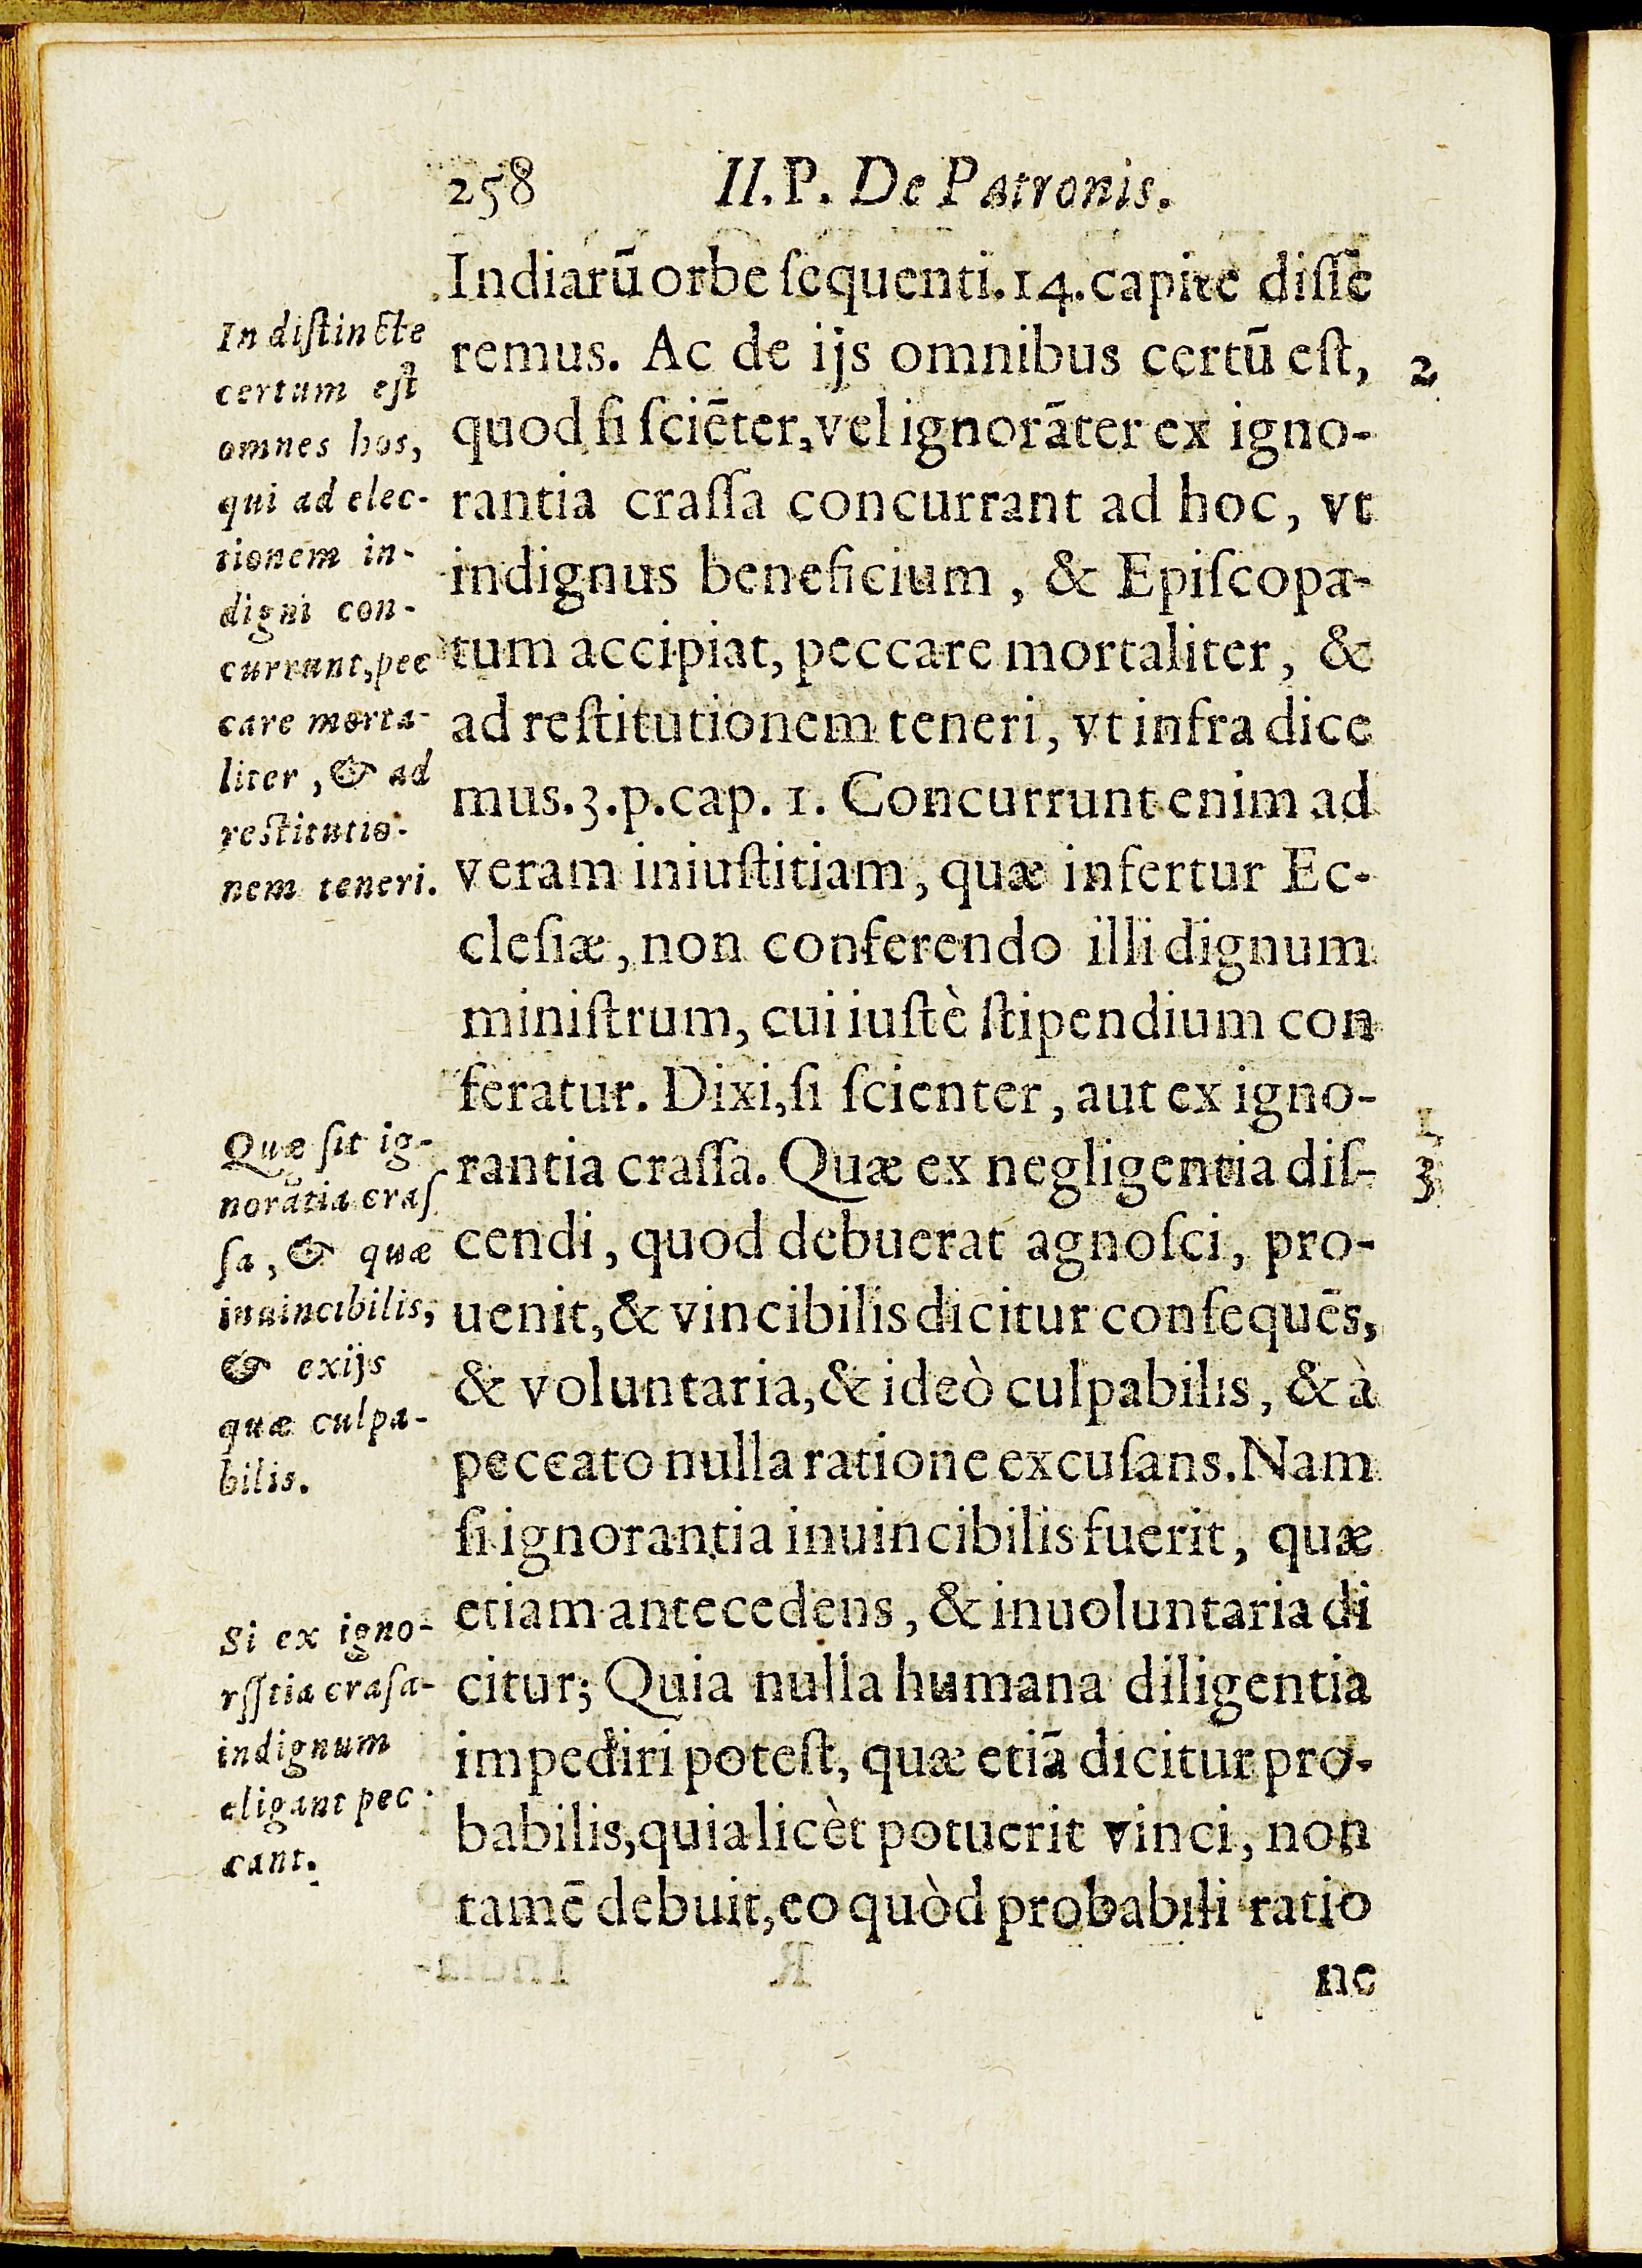 258 II.P. De Patronis.
Indiarū orbe ſequenti.14.capite diſſe
remus. Ac de ijs omnibus certū eſt,
quod ſi ſciēter, vel ignorāter ex igno-
rantia craſſa concurrant ad hoc, vt
indignus beneficium, & Epiſcopa-
tum accipiat, peccare mortaliter, &
ad reſtitutionem teneri, vt infra dice
mus.3.p.cap. 1. Concurrunt enim ad
veram iniuſtitiam, quæ infertur Ec-
cleſiæ, non conferendo illi dignum
miniſtrum, cui iuſtè ſtipendium con
feratur. Dixi, ſi ſcienter, aut ex igno-
rantia craſſa. Quæ ex negligentia diſ-
cendi, quod debuerat agnoſci, pro-
uenit, & vincibilis dicitur conſequēs,
& voluntaria, & ideò culpabilis, & à
peccato nulla ratione excuſans. Nam
ſi ignorantia inuincibilis fuerit, quæ
etiam antecedens, & inuoluntaria di
citur; Quia nulla humana diligentia
impediri poteſt, quæ etiā dicitur pro-
babilis, quia licèt potuerit vinci, non
tamē debuit, eo quòd probabili ratio
ne
Indiſtincte
certum eſt
omnes hos,
qui ad elec-
tionem in-
digni con-
currunt, pec
care morta-
liter, & ad
reſtitutio-
nem teneri.
Quæ ſit ig-
norātia craſ
ſa, & quæ
inuincibilis,
& ex ijs
quæ culpa-
bilis.
Si ex igno-
rſſtia craſa-
indignum
eligant pec
cant.
2
3